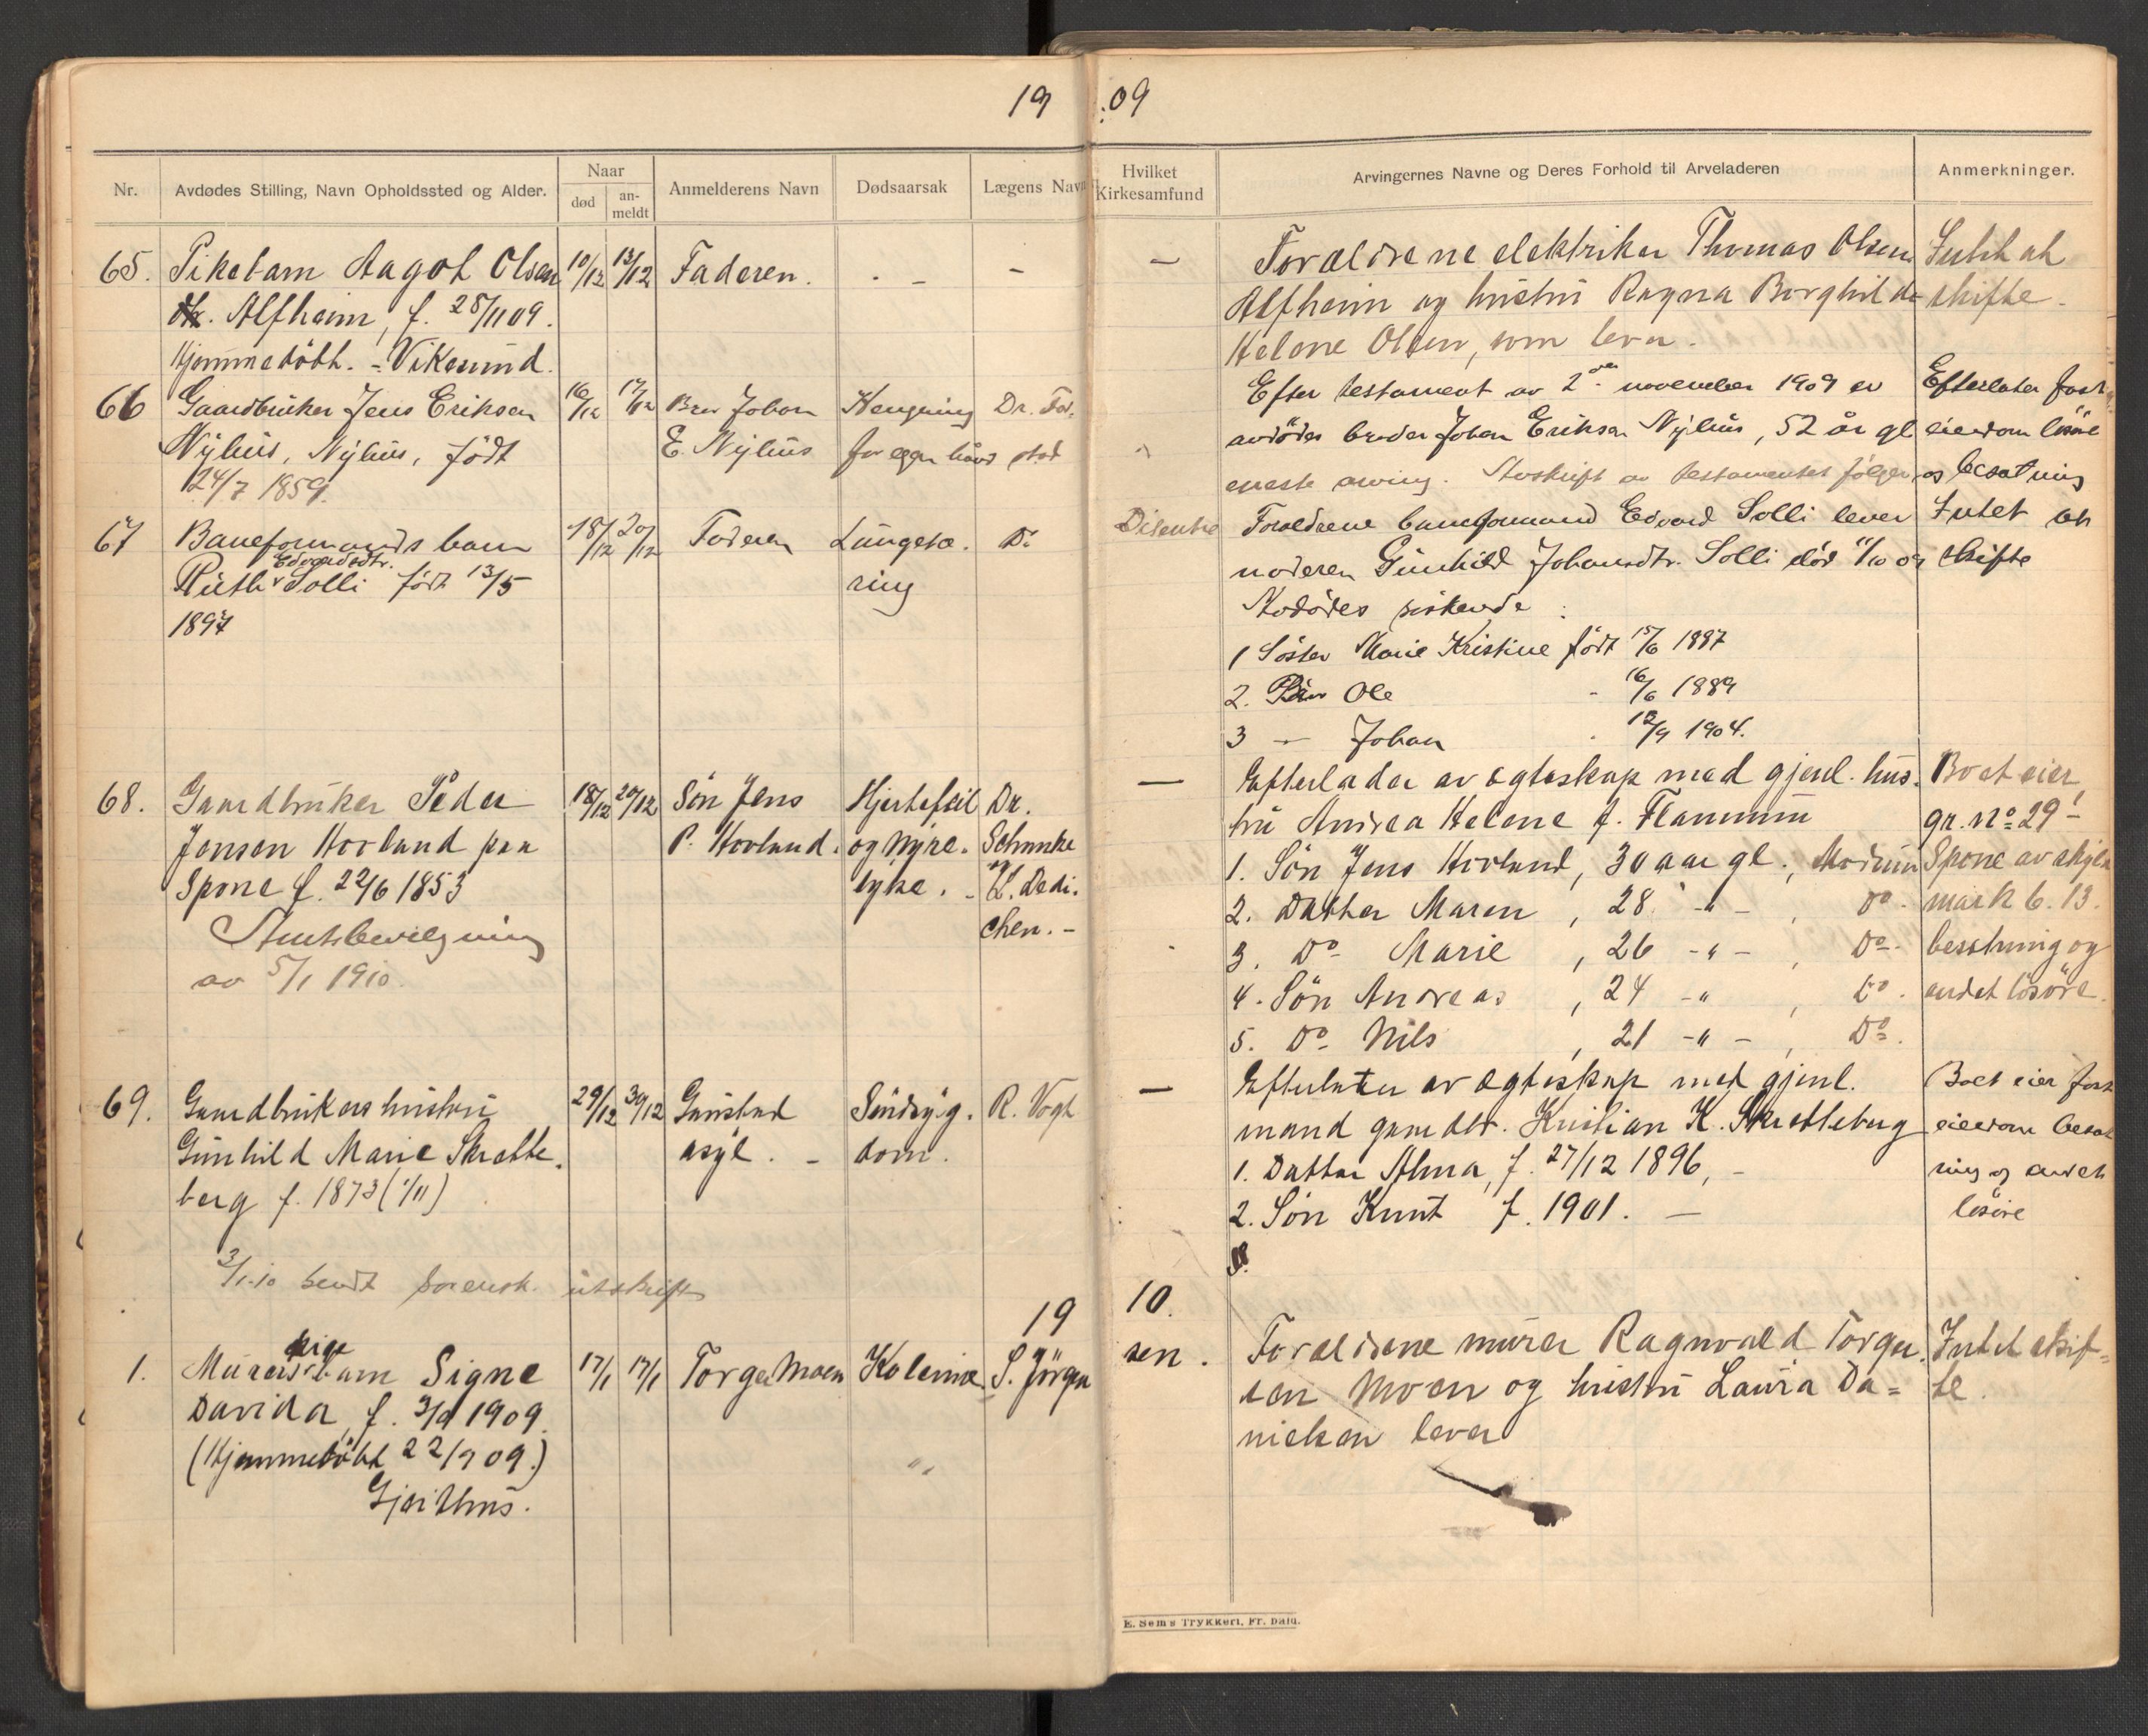 19 09
Nr.
Avdødes Stilling, Navn Opholdssted og Alder.
Naar
død
an-
meldt
Anmelderens Navn
Dødsaarsak
Lægens Navn
Hvilket
Kirkesamfund
Arvingernes Navne og Deres Forhold til Arveladeren
Anmerkninger.
65. Pikebarn Aagot Olsen
Alfheim, f. 28/11 09.
Hjemmedöbt. - Vikesund.
10/12 13/12 Faderen. - -
-
Forældrene elektriker Thomas Olsen
Alfheim og hustru Ragna Borghild
Helene Olsen, som lever.
Intet at
skifte.
66 Gaardbruker Jens Eriksen
Nyhus, Nyhus, födt
24/7 1859.
16/12 17/12
Bror Johan
E. Nyhus
Hengning
for egen hånd
Dr.
Efter testament av 2 november 1909 er
avdödes broder Johan Eriksen Nyhus, 52 år gl
eneste arving. Avskrift av testamentet følger
Efterlater fast
eiendom lösöre
og besætning
67 Baneformands barn
Edvardsdtr.
Ruth Solli födt 13/5
1897
18/12 20/12
Faderen
Lungetæ.
ring
Do
Disenter
Forældrene baneformand Edvard Solli lever
moderen Gunhild Johansdtr. Solli död 11/10 09
Avdödes söskende :
1 Söster Marie Kristine födt 15/6 1887
2. Bror Ole - 16/6 1889
3 - Johan - 12/9 1904.
Intet at
skifte
68. Gaardbruker Peder
Jensen Hovland paa
Spone f. 22/6 1853
Amtsbevilgning
av 5/1 1910.
18/12 20/12
Sön Jens
P. Hovland.
Hjertefeil
og nyre.
syke. -
Dr.
Schanke
og
L. Dedi.
chen. -
-
Efterlader av ægteskap med gjenl. hus.
tru Andrea Helene f. Flannum
1. Sön Jens Hovland, 30 aar gl., Modum
2. Datter Maren , 28 -"- , Do.
3. Do Marie , 26 -"- , Do.
4. Sön Andreas , 24 -" , Do.
5. Do Nils , 21 -"- , Do.
Boet eier
gr. No 29
Spone av skyld
mark 6. 13.
besetning og
andet lösöre.
69. Gaardbrukers hustru
Gunhild Marie Skrette.
berg f. 1873 (1/11)
3/1.10 sendt sorensk. utskrift
29/12 30/12
Gaustad
asyl. -
Sindsyg.
dom.
R. Vogt
-
Efterlater av ægteskap med gjenl.
mand gaardbr. Kristian K. Skretteberg
1. Datter Alma, f. 27/12 1896, -
2. Sön Knut f. 1901. -
Boet eier fast
eiendom besæt
ning og andet
lösöre
19 10.
1. Murers pige barn Signe
Davida, f. 3/9 1909.
(Hjemmedöbt 22/9 09.)
Gjeithus.
17/1 17/1 Torger Moen Kolerine S. Jörgen
sen.
Forældrene murer Ragnvald Torger.
sen Moen og hustru Laura Da=
nielsen lever
Intet skif=
te.
E. Sem's Trykkeri, Fr. hald.